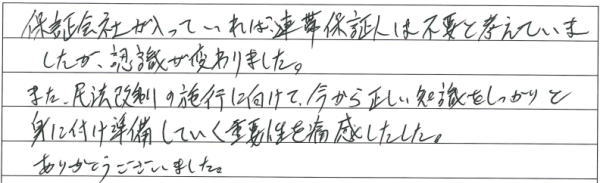 保証会社が入っていれば、連帯保証人は不要と考えていま
したが、認識が変わりました。
また、民法改制の施行に向けて、今から正しい知識をしっかりと
身に付け準備していく重要性を痛感したした。
ありがとうございました。